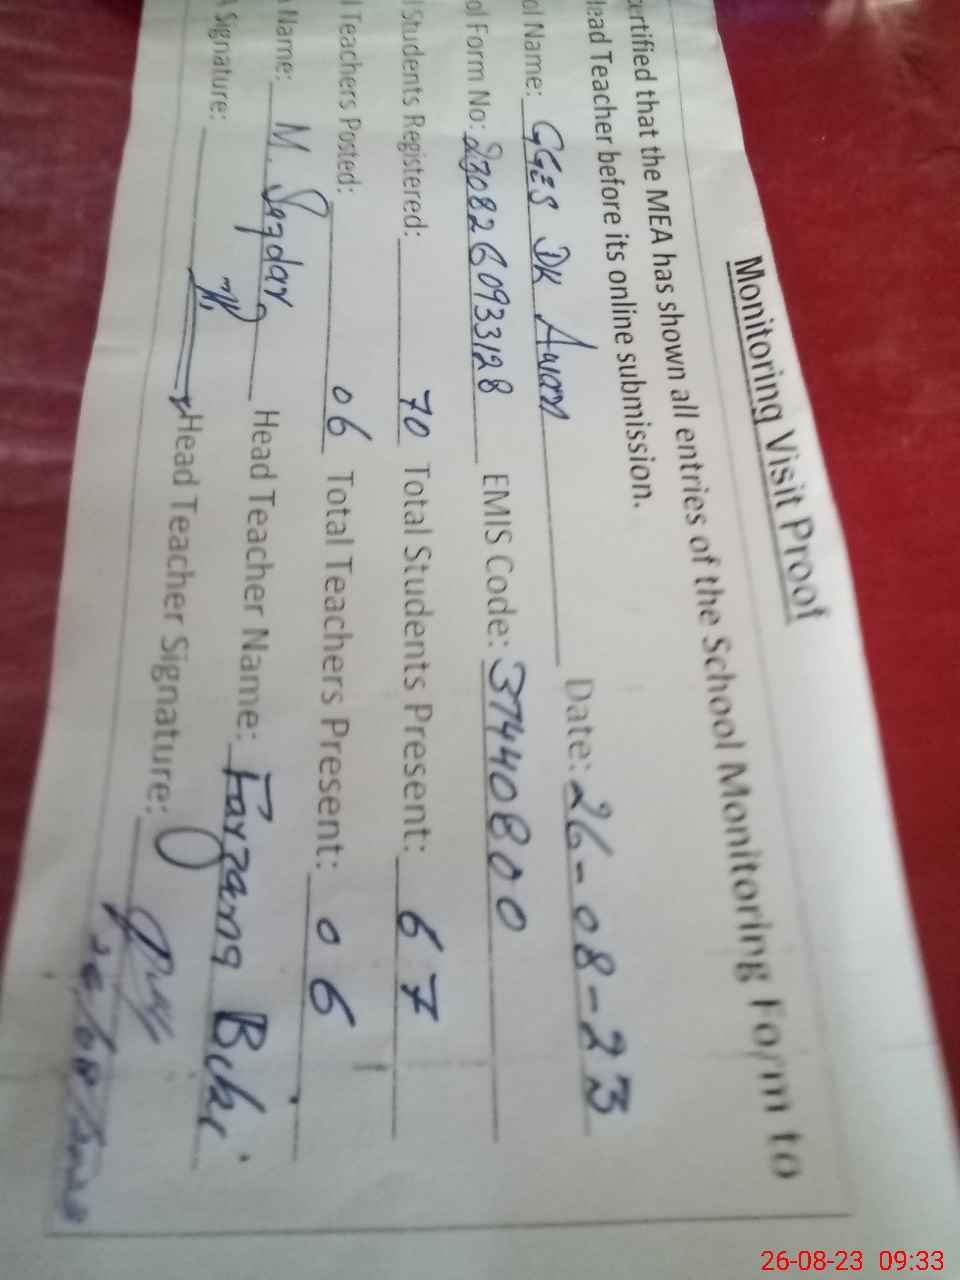 Monitoring Visit Proof
ertified that the MEA has shown all entries of the School Monitoring Form to
lead Teacher before its online submission.
ol Name: GGES DK Awan Date: 26-08-23
ol Form No: 2308260933128 EMIS Code: 37440800
l Students Registered: 70 Total Students Present: 67
l Teachers Posted: 06 Total Teachers Present: 06
Name: M. Head Teacher Name: Farzana Bibi
A Signature: Head Teacher Signature:
26-08-23 09:33